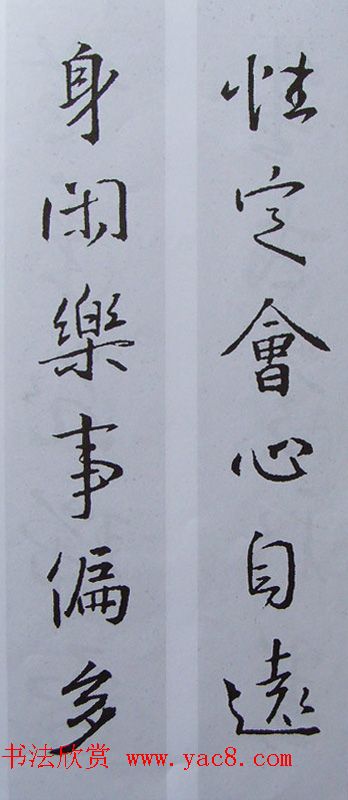 性定會心自遠
身閑樂事偏多
书法欣赏 www.yac8.com